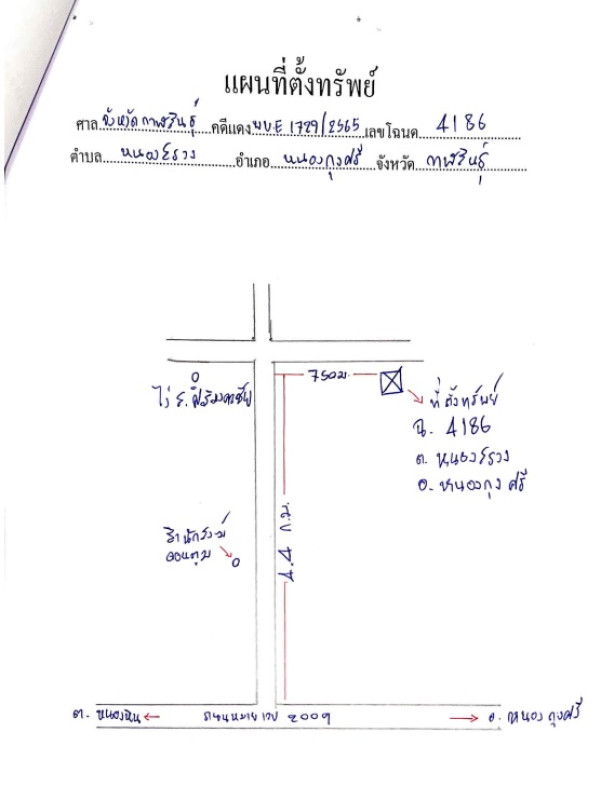 แผนที่ตั้งทรัพย์
ศาล จังหวัดกาฬสินธุ์ คดีแดง ผบE 1729/2565 เลขโฉนด 4186
ตำบล หนองสรวง อำเภอ หนองกุงศรี จังหวัด กาฬสินธุ์
750ม.
ไร่
ที่ตั้งทรัพย์
ฉ. 4186
ต. หนองสรวง
อ. หนองกุงศรี
4.4 ก.ม.
สำนักสงฆ์
ต. หนองหิน
ถนนหมายเลข 2009
อ. หนองกุงศรี